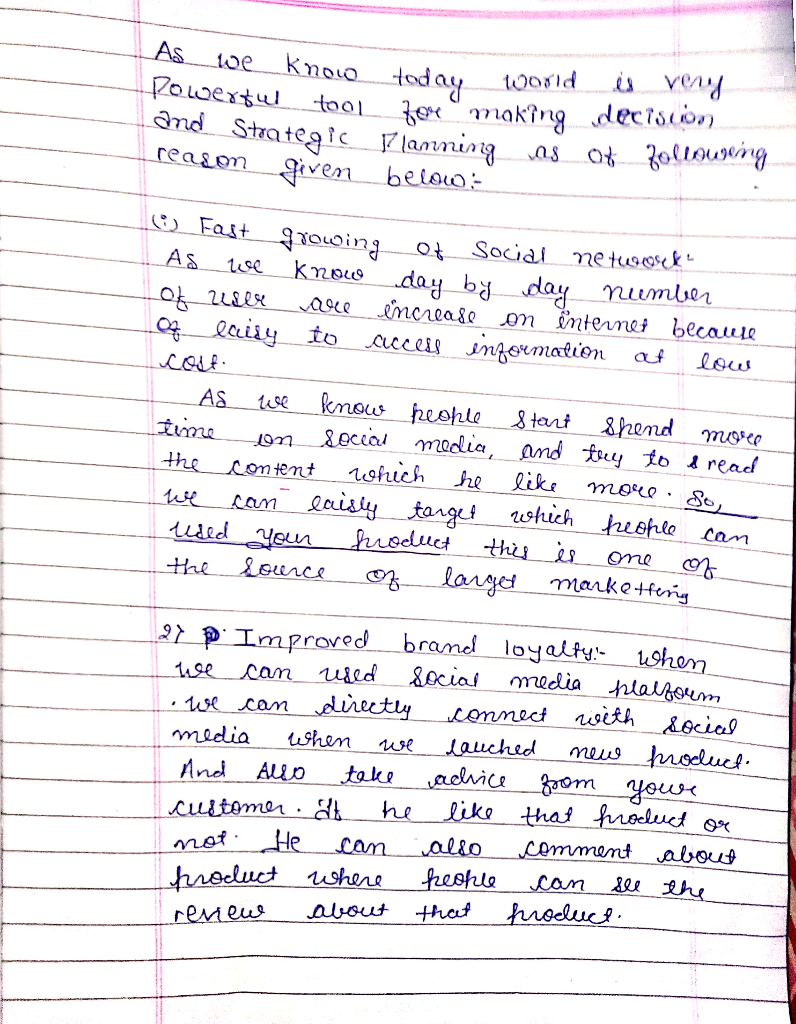 As we know today world is very
Powerful tool for making decision
and Strategic Planning as of following
reason given below:-
(i) Fast growing of Social network:-
As we know day by day number
of user are increase on internet because
of eaisy to access information at low
cost.
As we know people start spend more
time on social media, and try to read
the content which he like more. So,
we can eaisly target which people can
used your product this is one of
the source of larget marketting
2) Improved brand loyalty:- when
we can used social media platform
. we can directly connect with social
media when we lauched new product.
And Also take advice from your
customer. If he like that product or
not. He can also comment about
product where people can see the
review about that product.